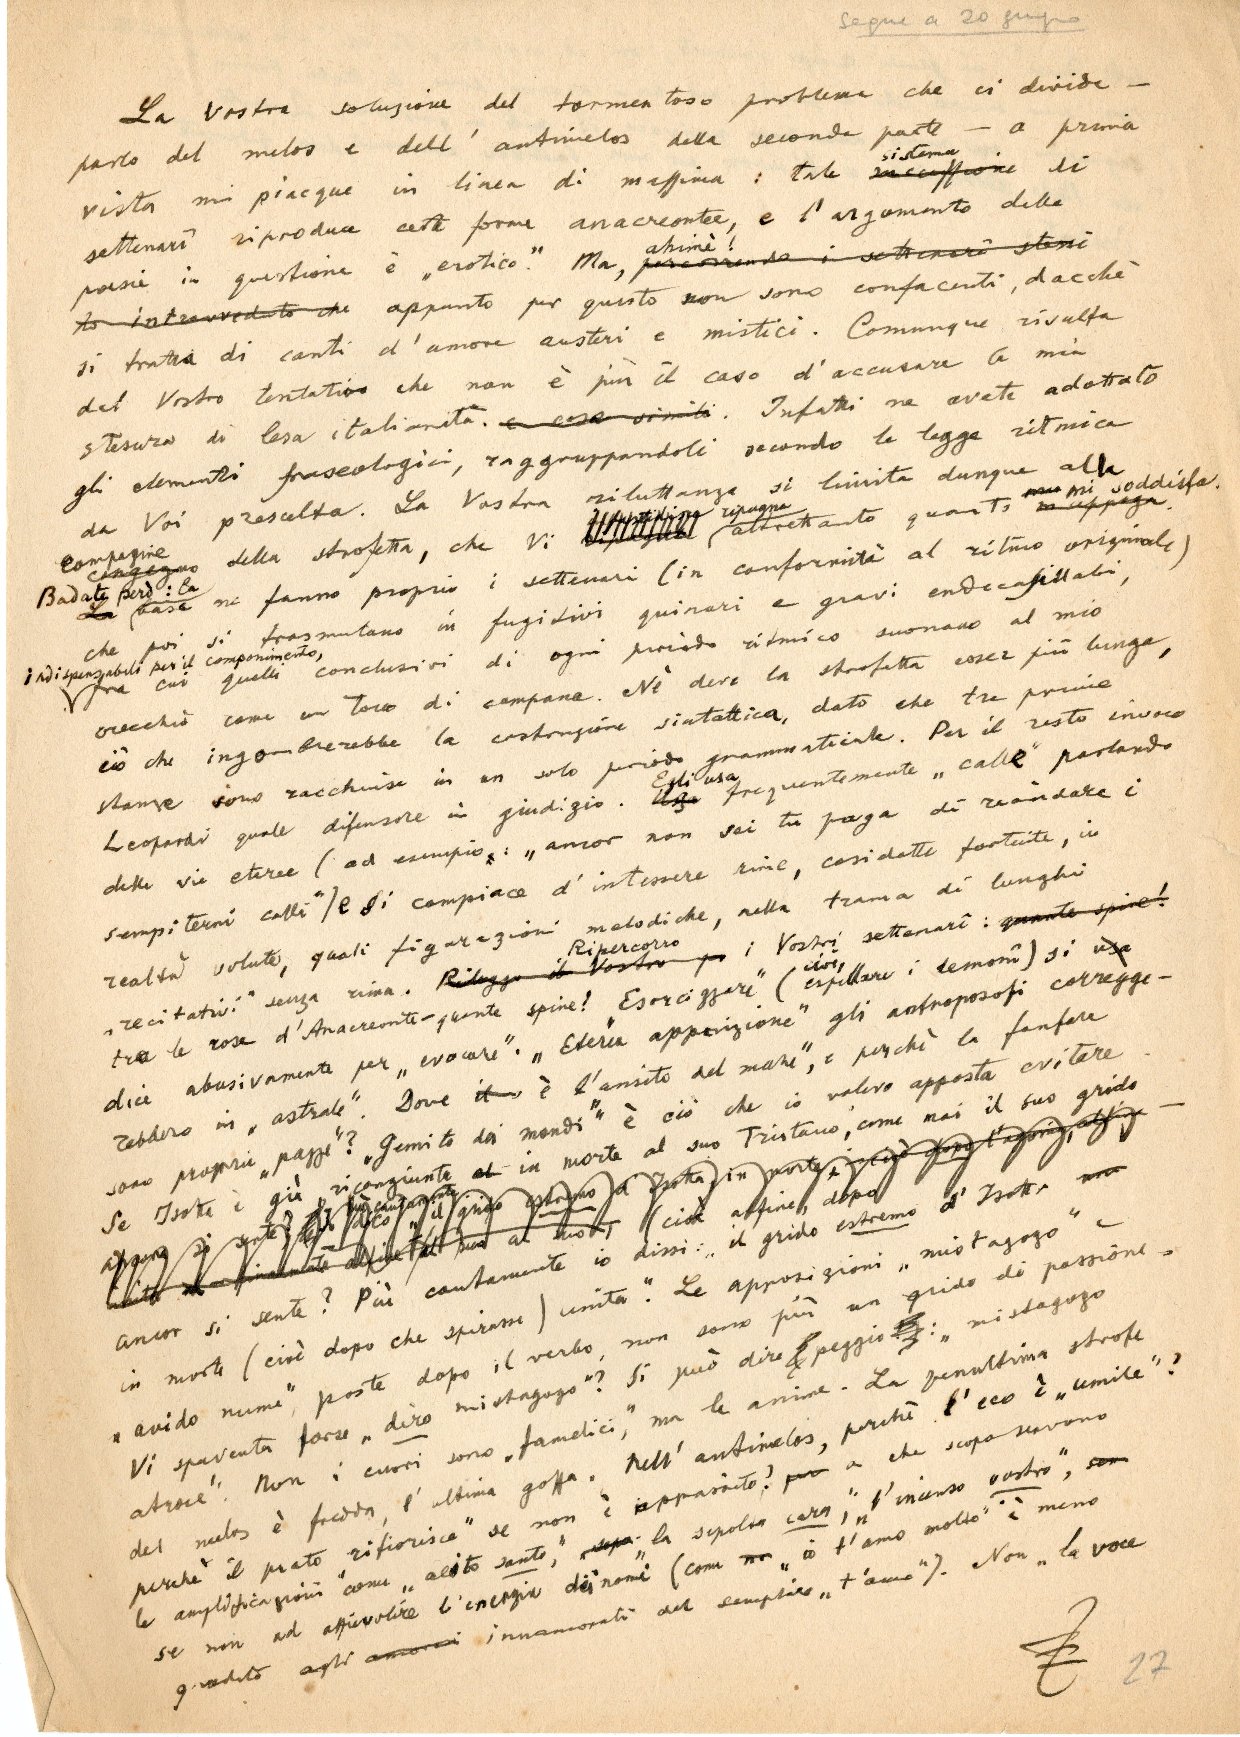 Segue a 20 giugno
La Vostra soluzione del tormentoso problema che ci divide —
parlo del melos e dell' antimelos della seconda parte — a prima
vista mi piacque in linea di massima : tale sistema di
settenarî riproduce certe forme anacreontee, e l'argomento delle
poesie in questione è „erotico". Ma, ahimè! percorrendo i settenarî stessi
ho intravveduto che appunto per questo non sono confacenti, dacchè
si tratta di canti d'amore austeri e mistici. Comunque risulta
dal Vostro tentativo che non è più il caso d'accusare la mia
stesura di lesa italianità. e cose simili. Infatti ne avete adottato
gli elementi fraseologici, raggruppandoli secondo la legge ritmica
da Voi prescelta. La Vostra riluttanza si limita dunque alla
compagine della strofetta, che Vi ripugna altrettanto quanto mi soddisfa.
Badate però: la base ne fanno proprio i settenari (in conformità al ritmo originale)
che poi si trasmutano in fugitivi quinari e gravi endecasillabi,
indispensabili per il componimento,
fra cui quelli conclusivi di ogni periodo ritmico suonano al mio
orecchio come un tocco di campana. Nè deve la strofetta esser più lunga,
ciò che ingombrerebbe la costruzione sintattica, dato che tre prime
stanze sono racchiuse in un solo periodo grammaticale. Per il resto invoco
Leopardi quale difensore in giudizio. Egli usa frequentemente „calle" parlando
delle vie eteree (ad esempio: „ancor non sei tu paga di riandare i
sempiterni calli") e si compiace d'intessere rime, cosidette fortuite, in
realtà volute, quali figurazioni melodiche, nella trama di lunghi
„recitativi" senza rima. Rileggo il Vostro Ripercorro i Vostri settenarî : quante spine!
tra le rose d'Anacreonte – quante spine! „Esorcizzare" (cioè, espellere i demonî) si usa
dice abusivamente per „evocare". „Eterea apparizione" gli antroposofi corregge-
rebbero in „astrale". Dove è l'ansito del mare", e perchè le fanfare
sono proprio „pazze"? „Gemito dei mondi" è ciò che io volevo apposta evitare.
Se Isotta è già ricongiunta in morte al suo Tristano, come mai il suo grido
ancor si sente? Più cautamente io dissi: „il grido estremo d'Isotta
in morte (cioè dopo che spirasse) unita". Le apposizioni „mistagogo" e
„avido nume", poste dopo il verbo, non sono più un grido di passione.
Vi spaventa forse „diro mistagogo"? Si può dire peggio: „mistagogo
atroce". Non i cuori sono „famelici", ma le anime. La penultima strofe
del melos è fredda, l'ultima goffa. Nell' antimelos, perchè l'eco è „umile"?
perchè il prato „rifiorisce" se non è appassito? a che scopo servono
le amplificazioni come „alito santo", „la sepolta cara", „l'incenso vostro",
se non ad affievolire l'energia dei nomi (come „io t'amo molto" è meno
gradito agli amorosi innamorati del semplice „t'amo"). Non „la voce
27